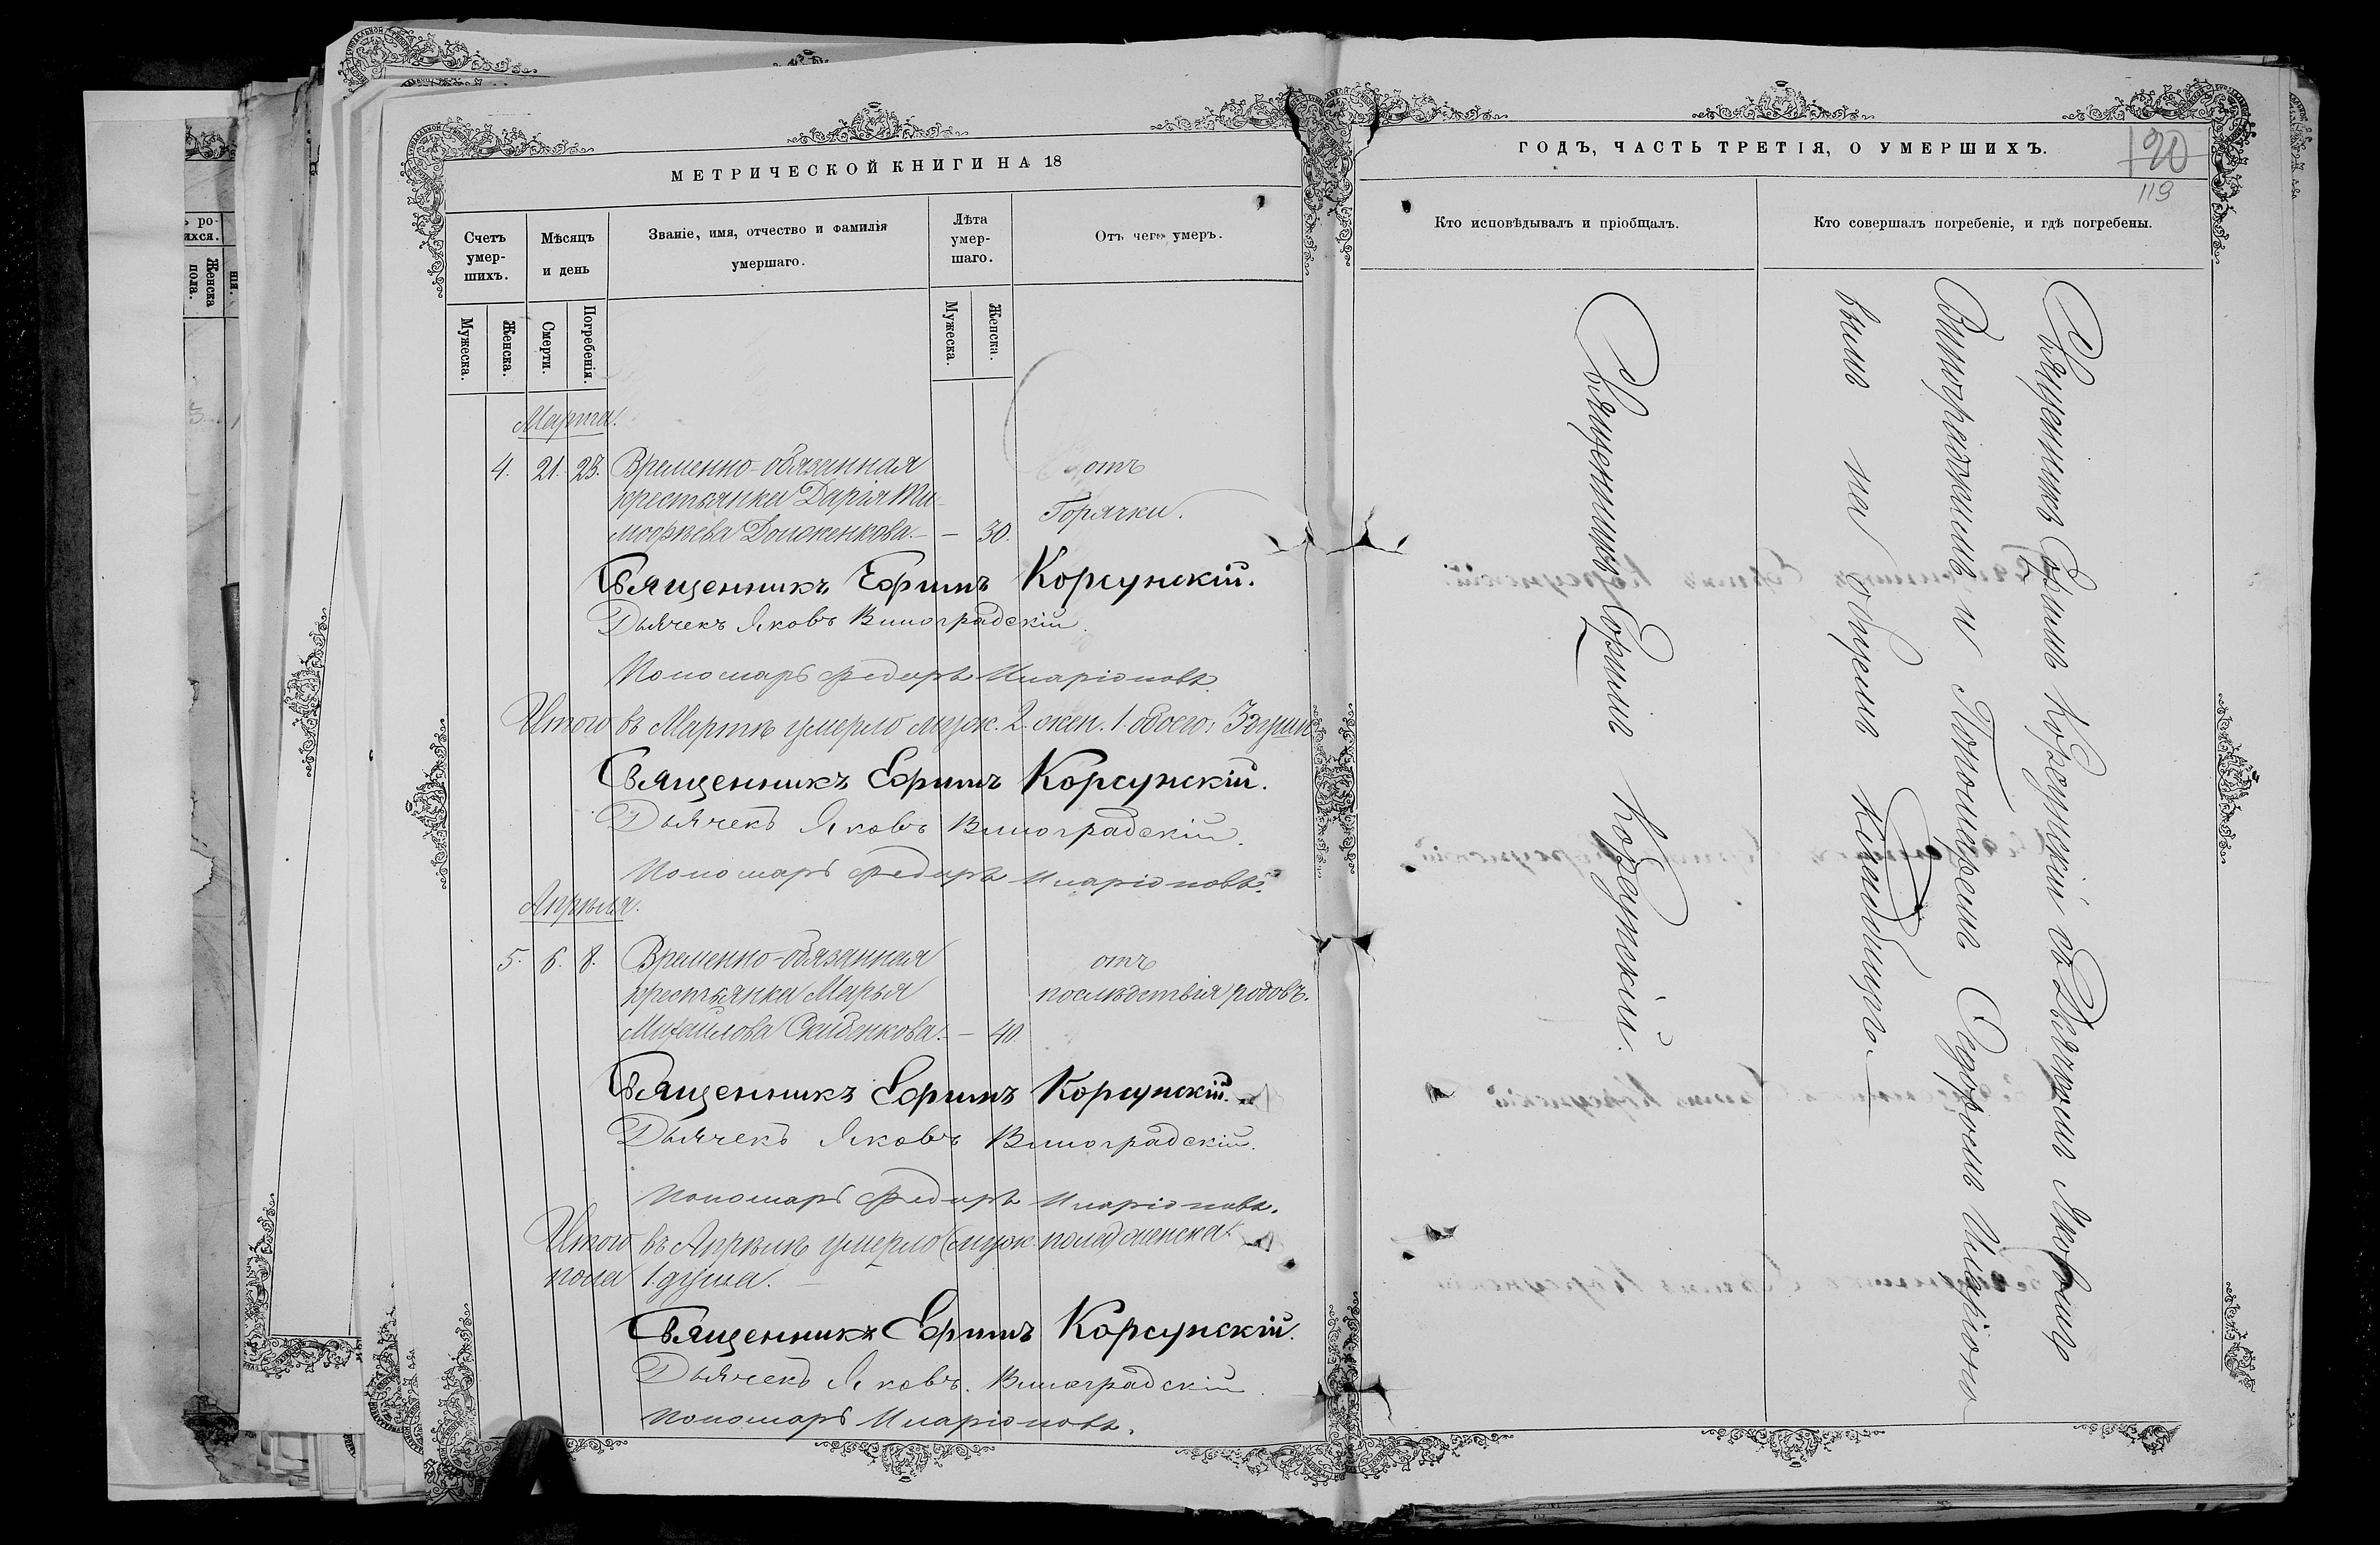 МЕТРИЧЕСКОЙ КНИГИ НА 18
Счетъ умер-шихъ.
Мѣсяцъ и день
Званіе, имя, отчество и фамилія умершаго.
Лѣта умер-шаго.
Отъ чего умеръ.
Мужеска.
Женска.
Смерти.
Погребенія.
Мужеска.
Женска.
Марта.
4. 21. 23. Временно-обязанная отъ
крестьянка Дарія Ти-
моѳѣева Долженкова. — — 30. Горячки.
Священникъ Ефимъ Корсунскій.
Дьячекъ Яковъ Виноградскій
Пономарь Федоръ Иларіоновъ.
Итого въ Мартѣ умерло муж. 2. жен. 1. обоего 3 душъ
Священникъ Ефимъ Корсунскій.
Дьячекъ Яковъ Виноградскій.
Пономарь Федоръ Иларіоновъ.
Апрѣля.
5. 6. 8. Временно-обязанная отъ
крестьянка Марья послѣдствія родовъ.
Михайлова — 40
Священникъ Ефимъ Корсунскій.
Дьячекъ Яковъ Виноградскій.
Пономарь Федоръ Иларіоновъ.
Итого въ Апрѣлѣ умерло (муж. пола) женска
пола 1. душа. —
Священникъ Ефимъ Корсунскій.
Дьячекъ Яковъ Виноградскій
Пономарь Иларіоновъ.
ГОДЪ, ЧАСТЬ ТРЕТІЯ, О УМЕРШИХЪ.
120
119
Кто исповѣдывалъ и пріобщалъ.
Кто совершалъ погребеніе, и гдѣ погребены.
Священникъ Ефимъ Корсунскій.
Священникъ Ефимъ Корсунскій съ Дьячкомъ Яковомъ
Виноградскимъ и Пономаремъ Федоромъ Иларіоно-
вымъ на общемъ кладбищѣ. —
ъ ро-
ихся.
Женска пола.
нія.